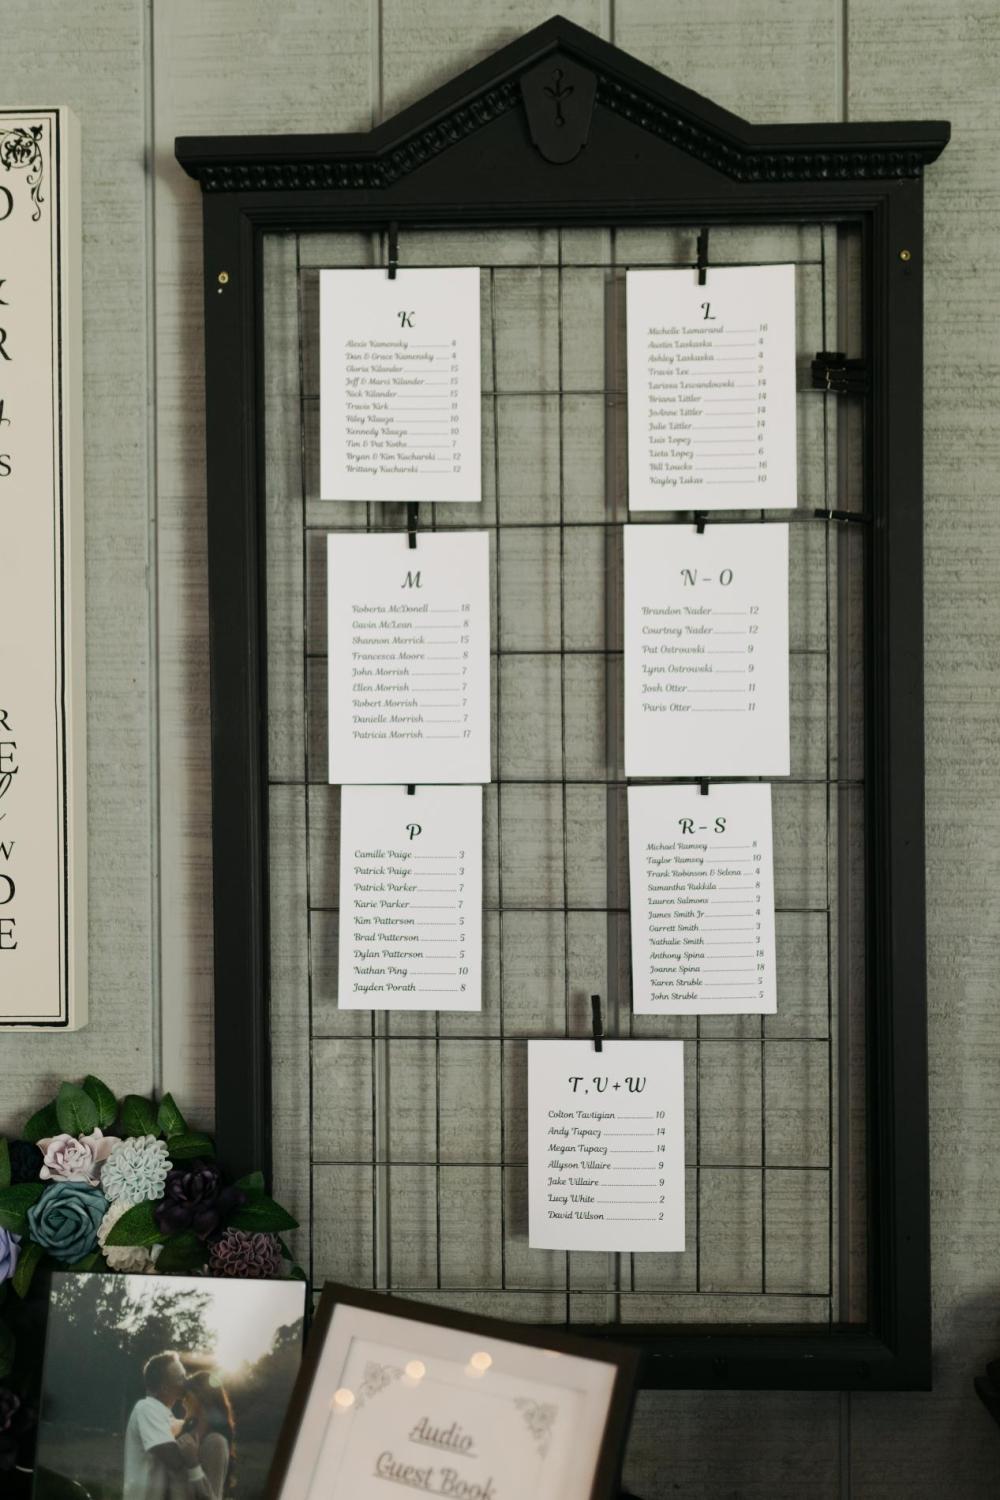 K
Alexis Kamensky 4
Dan & Grace Kamensky 4
Gloria Kilander 15
Jeff & Marci Kilander 15
Nick Kilander 15
Travis Kirk 11
Riley Klauza 10
Kennedy Klauza 10
Tim & Pat Koths 7
Bryan & Kim Kucharski 12
Brittany Kucharski 12
L
Michelle Lamarand 16
Austin Laskaska 4
Ashley Laskaska 4
Travis Lee 2
Larissa Lewandowski 14
Briana Littler 14
JoAnne Littler 14
Julie Littler 14
Luis Lopez 6
Lieta Lopez 6
Bill Loucks 16
Kayley Lukas 10
M
Roberta McDonell 18
Gavin McLean 8
Shannon Merrick 15
Francesca Moore 8
John Morrish 7
Ellen Morrish 7
Robert Morrish 7
Danielle Morrish 7
Patricia Morrish 17
N - O
Brandon Nader 12
Courtney Nader 12
Pat Ostrowski 9
Lynn Ostrowski 9
Josh Otter 11
Paris Otter 11
P
Camille Paige 3
Patrick Paige 3
Patrick Parker 7
Karie Parker 7
Kim Patterson 5
Brad Patterson 5
Dylan Patterson 5
Nathan Ping 10
Jayden Porath 8
R - S
Michael Ramsey 8
Taylor Ramsey 10
Frank Robinson & Selena 4
Samantha Rukkila 8
Lauren Salmons 3
James Smith Jr 4
Garrett Smith 3
Nathalie Smith 3
Anthony Spina 18
Joanne Spina 18
Karen Struble 5
John Struble 5
T, V + W
Colton Tavtigian 10
Andy Tupacz 14
Megan Tupacz 14
Allyson Villaire 9
Jake Villaire 9
Lucy White 2
David Wilson 2
Audio
Guest Book